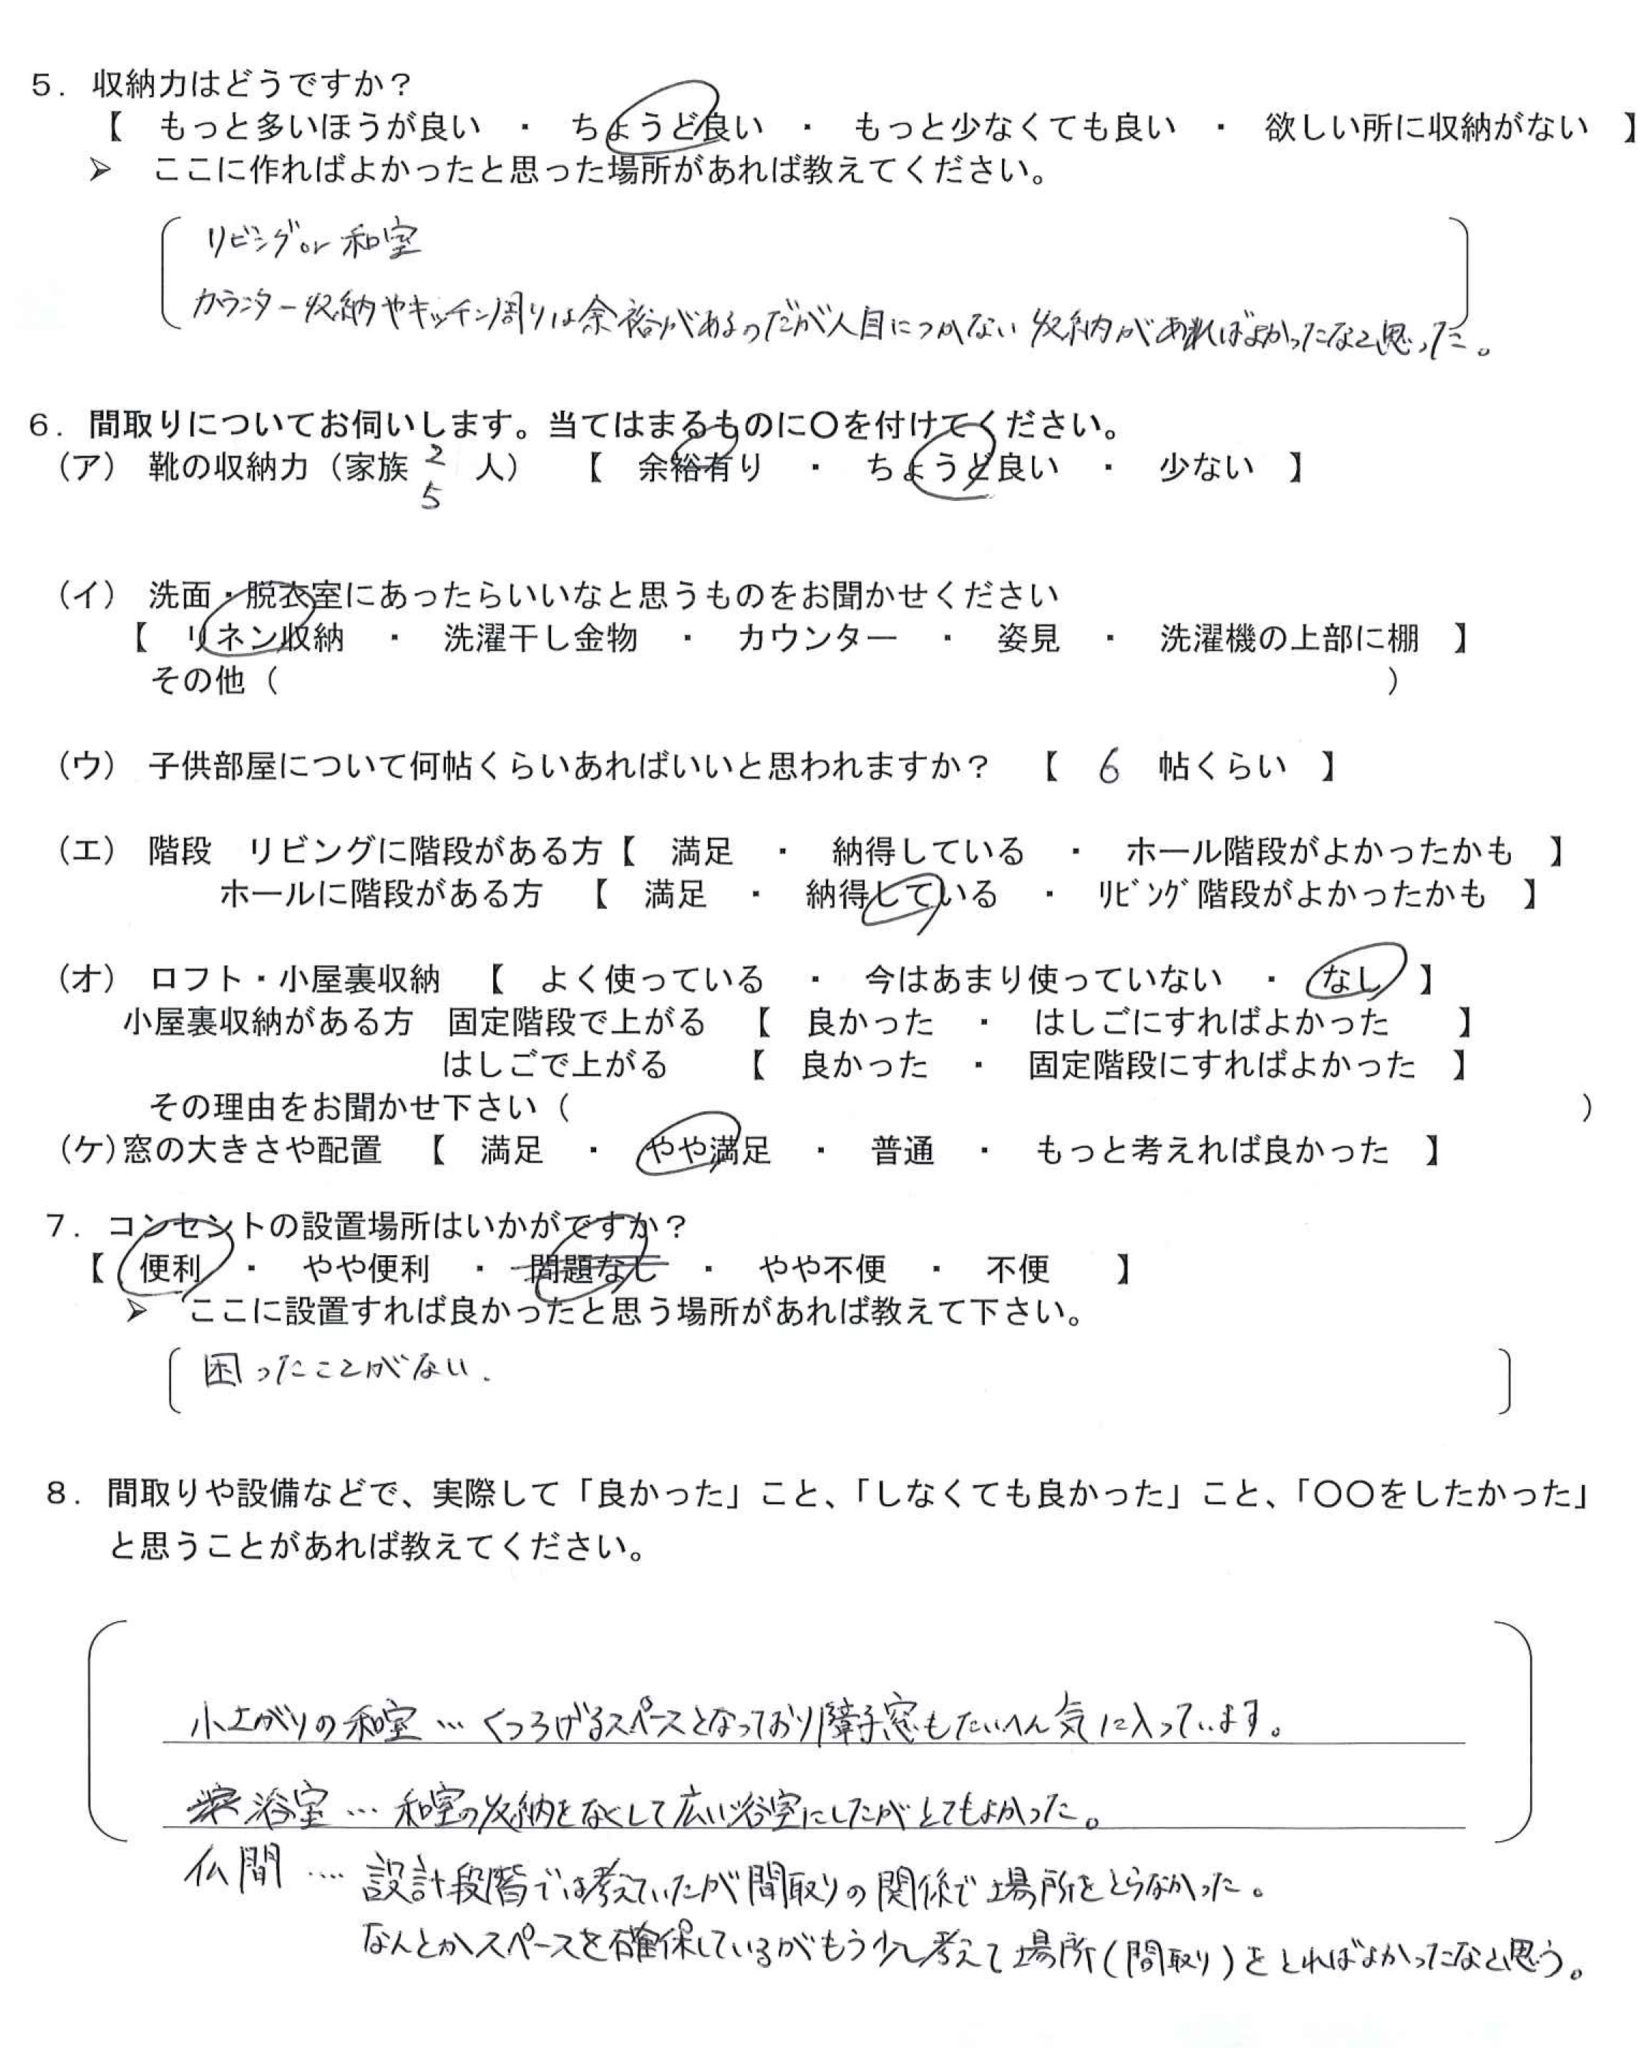 ５．収納力はどうですか？
【　もっと多いほうが良い　・　ちょうど良い　・　もっと少なくても良い　・　欲しい所に収納がない　】
➢　ここに作ればよかったと思った場所があれば教えてください。
リビングor和室
カウンター収納やキッチン周りは余裕があるのだが人目につかない収納があればよかったなと思った。
６．間取りについてお伺いします。当てはまるものに〇を付けてください。
（ア）　靴の収納力（家族　2　人）　【　余裕有り　・　ちょうど良い　・　少ない　】
5
（イ）　洗面・脱衣室にあったらいいなと思うものをお聞かせください
【　リネン収納　・　洗濯干し金物　・　カウンター　・　姿見　・　洗濯機の上部に棚　】
その他（　　　　）
（ウ）　子供部屋について何帖くらいあればいいと思われますか？　【　6　帖くらい　】
（エ）　階段　リビングに階段がある方【　満足　・　納得している　・　ホール階段がよかったかも　】
ホールに階段がある方　【　満足　・　納得している　・　ﾘﾋﾞﾝｸﾞ階段がよかったかも　】
（オ）　ロフト・小屋裏収納　【　よく使っている　・　今はあまり使っていない　・　なし　】
小屋裏収納がある方　固定階段で上がる　【　良かった　・　はしごにすればよかった　】
はしごで上がる　【　良かった　・　固定階段にすればよかった　】
その理由をお聞かせ下さい（　　　　）
（ケ）窓の大きさや配置　【　満足　・　やや満足　・　普通　・　もっと考えれば良かった　】
７．コンセントの設置場所はいかがですか？
【　便利　・　やや便利　・　問題なし　・　やや不便　・　不便　】
➢　ここに設置すれば良かったと思う場所があれば教えて下さい。
困ったことがない.
８．間取りや設備などで、実際して「良かった」こと、「しなくても良かった」こと、「〇〇をしたかった」
と思うことがあれば教えてください。
小上がりの和室…くつろげるスペースとなっており障子窓もたいへん気に入っています。
浴室…和室の収納をなくして広い浴室にしたがとてもよかった。
仏間‥‥設計段階では考えていたが間取りの関係で場所をとらなかった。
なんとかスペースを確保しているがもう少し考えて場所(間取り)をとればよかったなと思う。